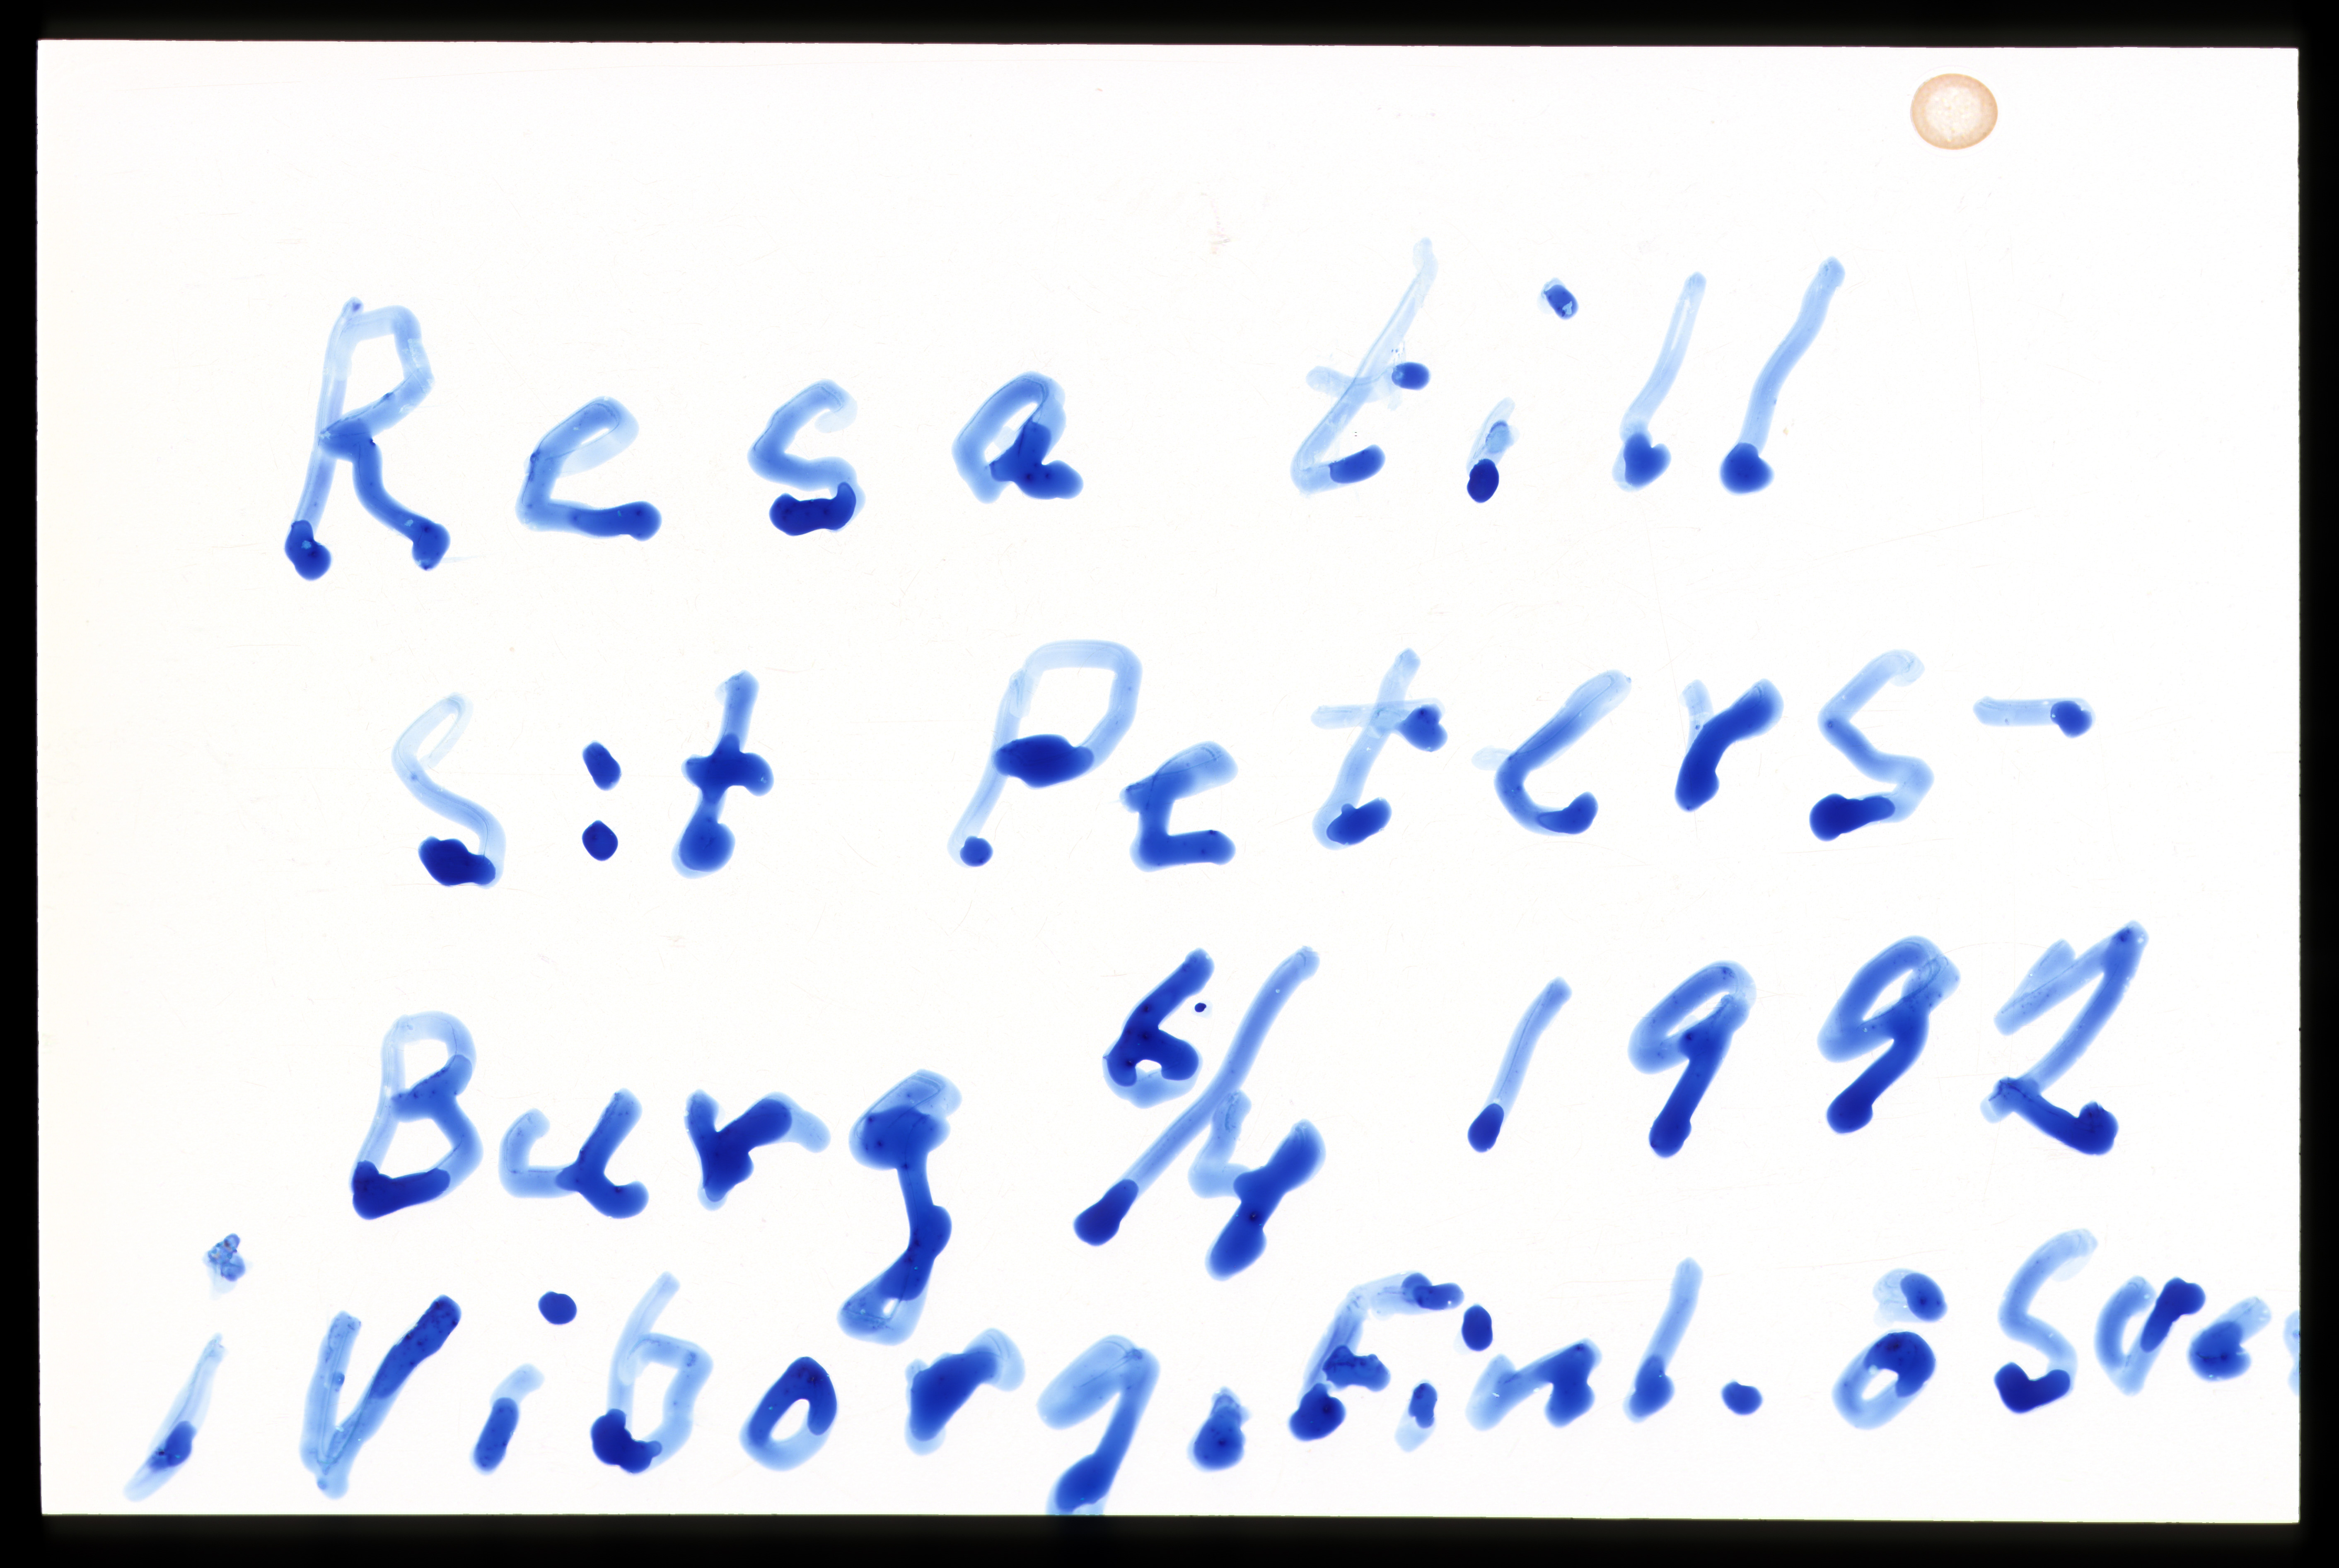 Resa till
S:t Peters-
Burg 5/4 1992
i Viborg. Finl. o